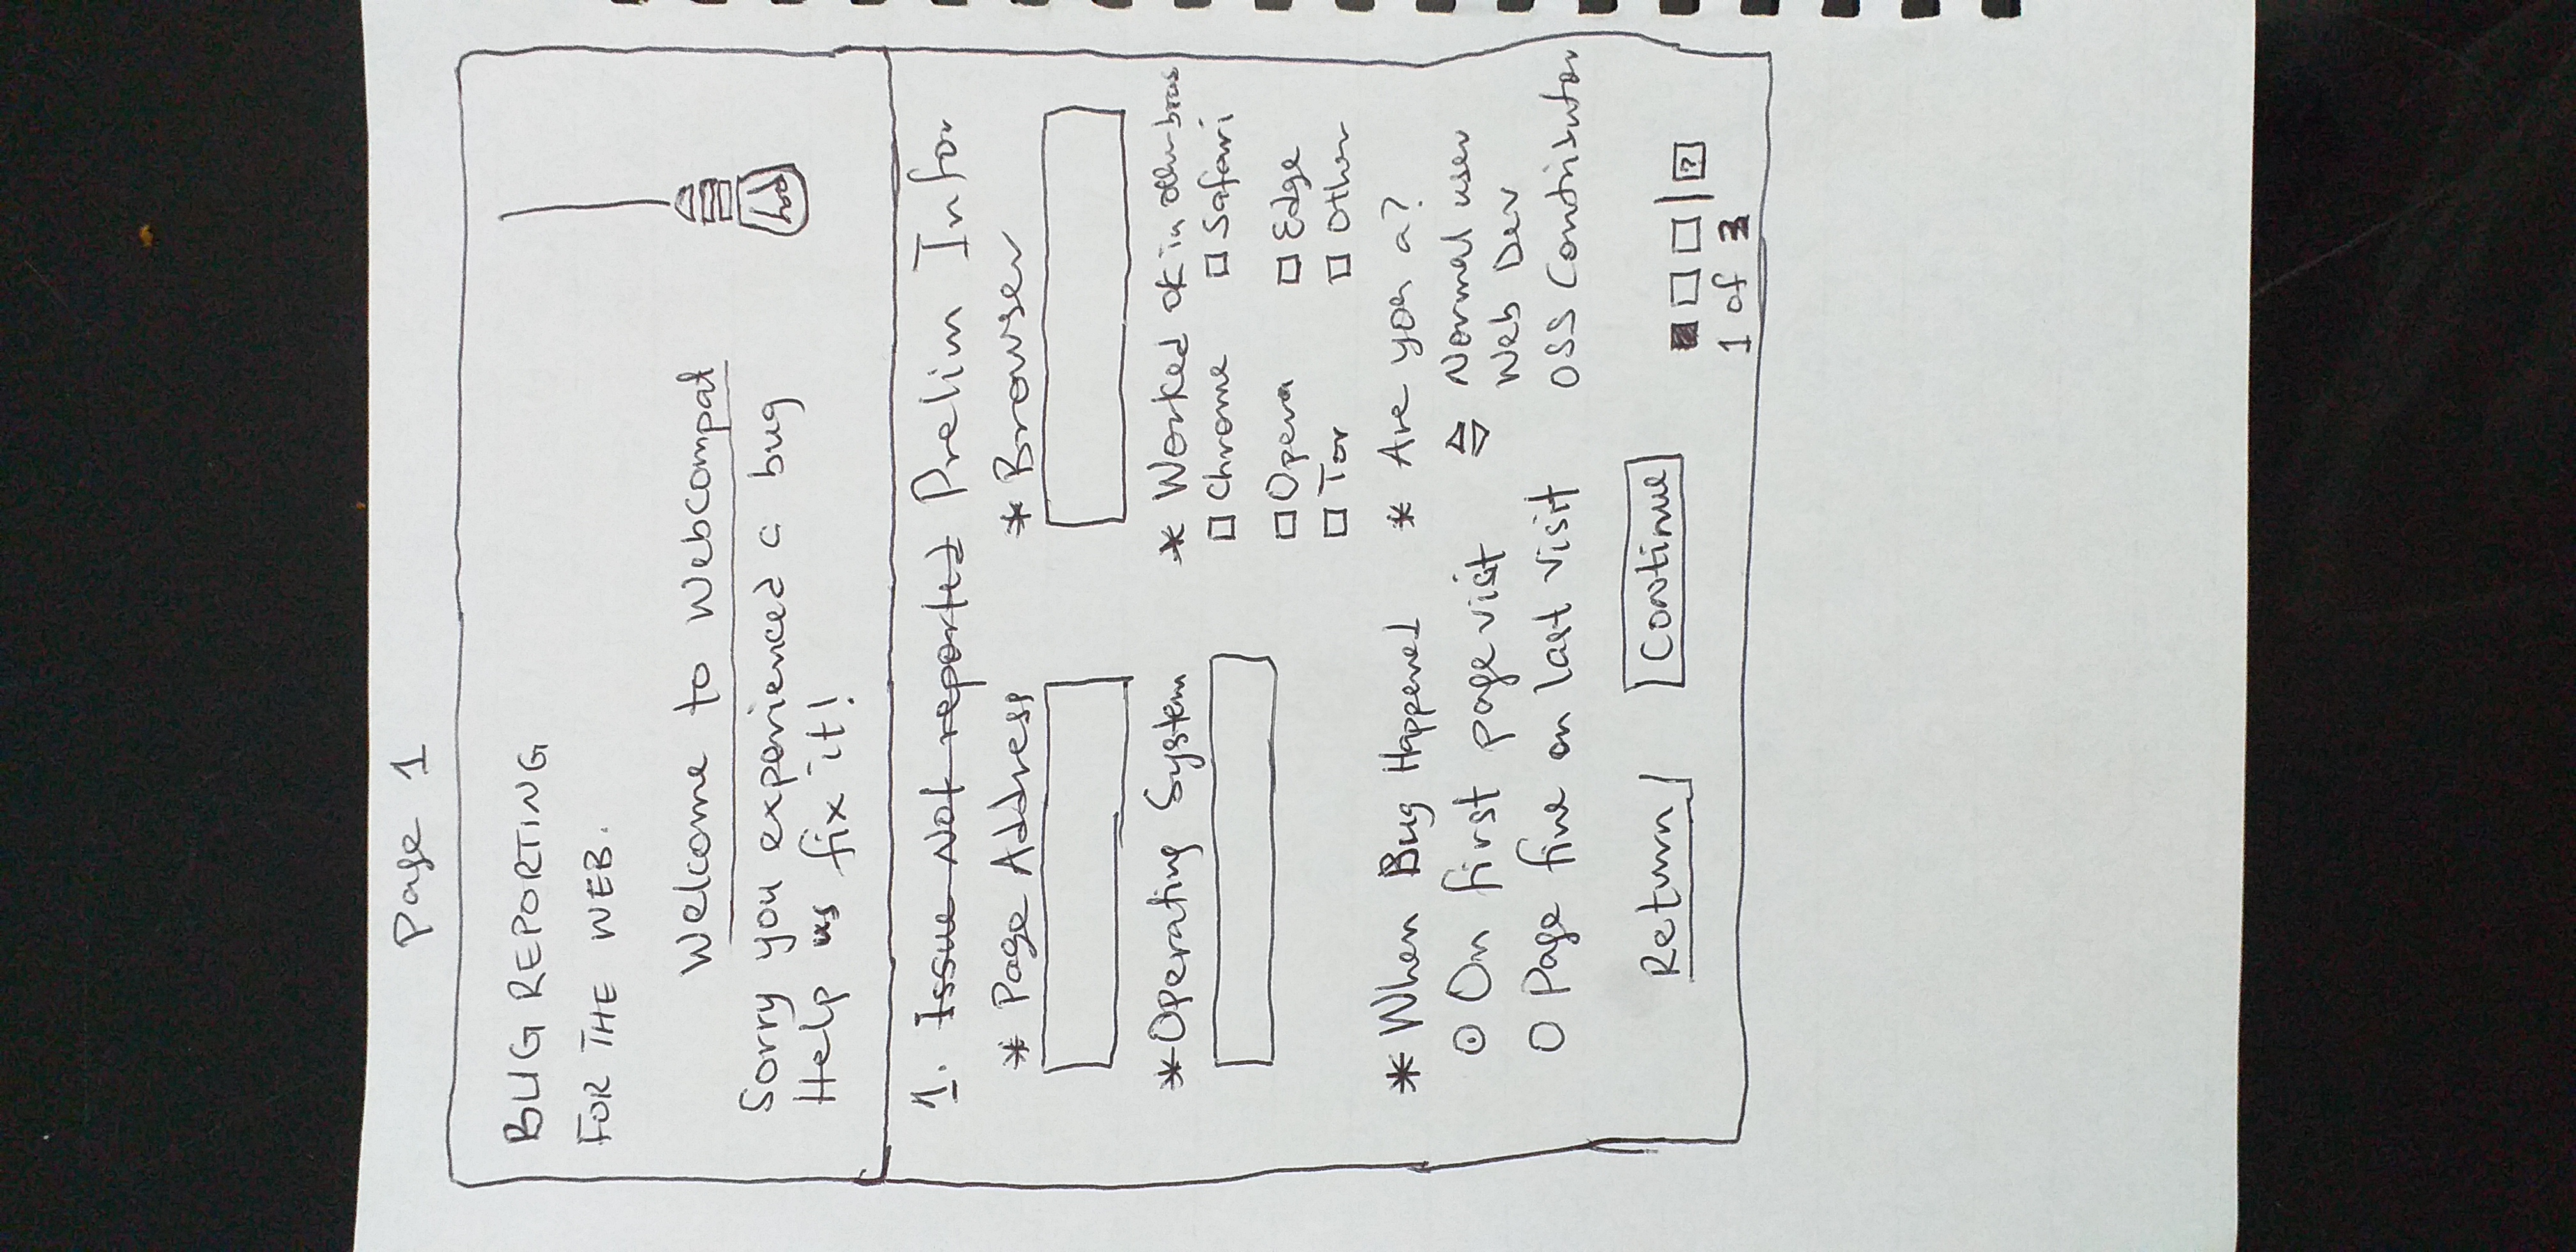 Page 1
BUG REPORTING
FOR THE WEB.
Welcome to Webcompat
Sorry you experienced a bug
Help us fix it!
1. Issue Not reported Prelim Infor
* Page Address * Browser
* Operating System * Worked ok in other
Chrome Safari
Opera Edge
Tor Other
* When Bug Happened * Are you a?
On first page visit Normal user
Web Dev
Page fine on last visit OSS Contributor
Return Continue
?
1 of 3